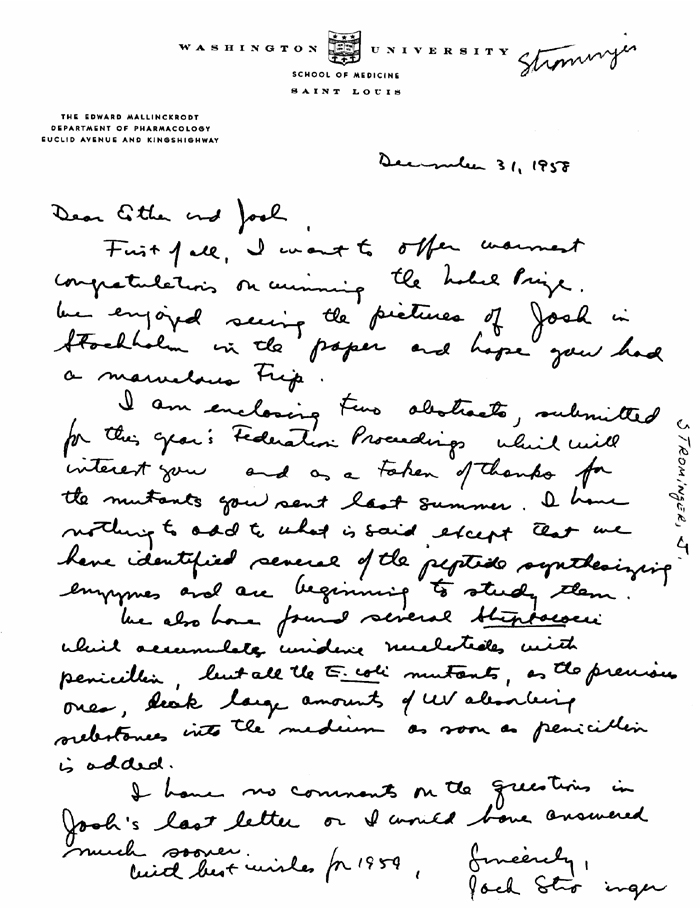 WASHINGTON UNIVERSITY
Strominger
SCHOOL OF MEDICINE
SAINT LOUIS
THE EDWARD MALLINCKRODT
DEPARTMENT OF PHARMACOLOGY
EUCLID AVENUE AND KINGSHIGHWAY
December 31, 1958
Dear Esther and Josh,
First of all, I want to offer warmest
congratulations on winning the Nobel Prize.
We enjoyed seeing the pictures of Josh in
Stockholm in the paper and hope you had
a marvelous trip.
I am enclosing two abstracts, submitted
for this year's Federation Proceedings which will
interest you and as a token of thanks for
the mutants you sent last summer. I have
nothing to add to what is said except that we
have identified several of the peptide synthesizing
enzymes and are beginning to study them.
We also have found several Streptococci
which accumulate uridine nucleotides with
penicillin, but all the E. coli mutants, as the previous
ones, leak large amounts of UV absorbing
substances into the medium as soon as penicillin
is added.
I have no comments on the questions in
Josh's last letter or I would have answered
much sooner.
With best wishes for 1959,
Sincerely,
Jack Stro inger
STROMINGER, J.